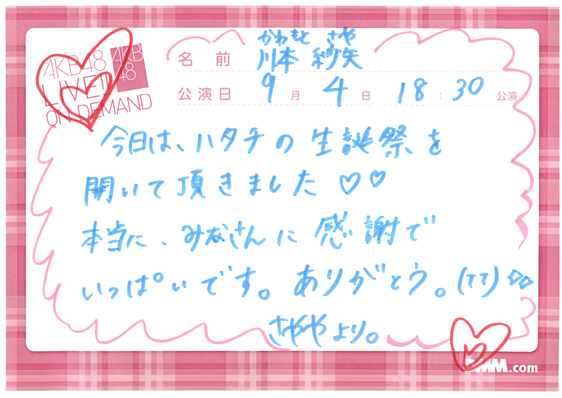 AKB48
LIVE!!
ON DEMAND
AKB
48
かわもと さや
名前 川本 紗矢
公演日 9月4日 18:30公演
今日は、ハタチの生誕祭を
開いて頂きました♡♡
本当に、みなさんに感謝で
いっぱいです。ありがとう。(TT)◇◇
さややより。
DMM.com